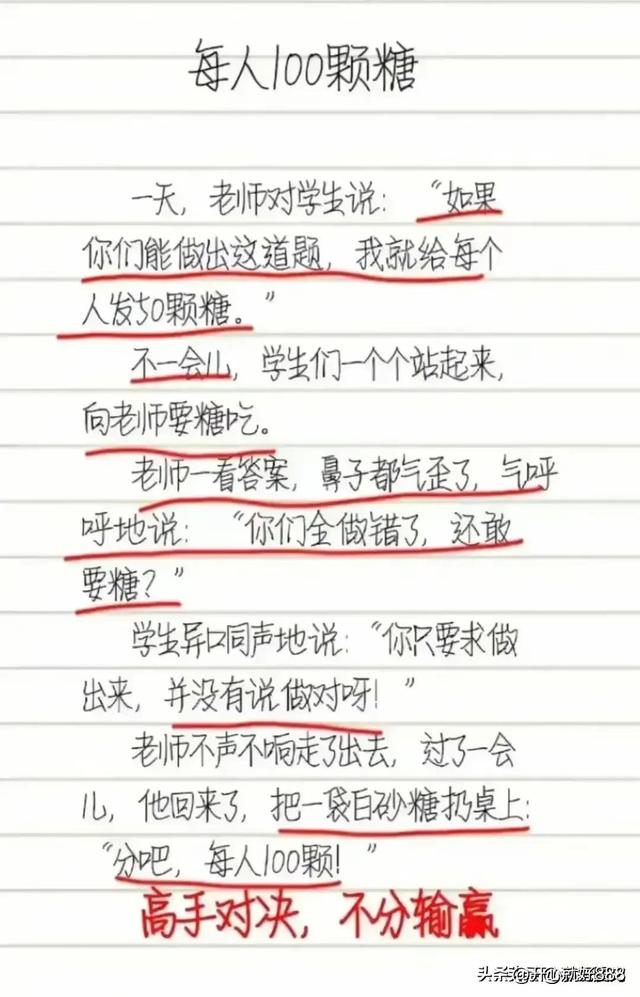 每人100颗糖
一天，老师对学生说：“如果
你们能做出这道题，我就给每个
人发50颗糖。”
不一会儿，学生们一个个站起来，
向老师要糖吃。
老师一看答案，鼻子都气歪了，气呼
呼地说：“你们全做错了，还敢
要糖？”
学生异口同声地说：“你只要求做
出来，并没有说做对呀！”
老师不声不响走了出去，过了一会
儿，他回来了，把一袋白砂糖扔桌上：
“分吧，每人100颗！”
高手对决，不分输赢